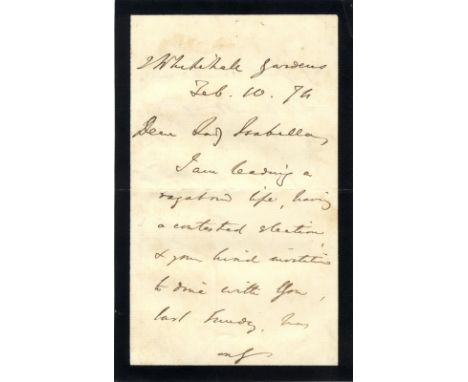 2 Whitehall Gardens
Feb. 10. 74
Dear Lady Isabella,
I am leading a
vagabond life, having
a contested election,
& your kind invitation
to dine with you,
last Sunday, has
only